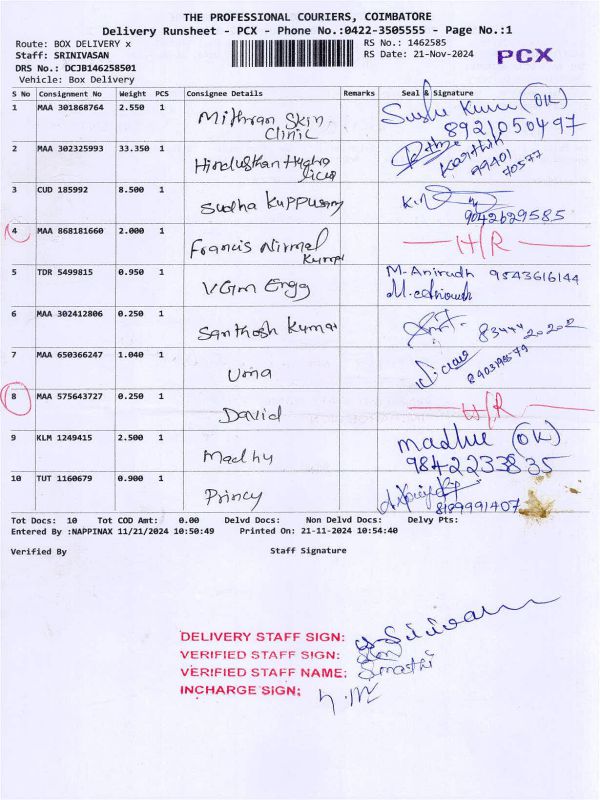 THE PROFESSIONAL COURIERS, COIMBATORE
Delivery Runsheet - PCX - Phone No.:0422-3505555 - Page No.:1
Route: BOX DELIVERY x RS No.: 1462585
Staff: SRINIVASAN RS Date: 21-Nov-2024 PCX
DRS No.: DCJB146258501
Vehicle: Box Delivery
S No Consignment No Weight PCS Consignee Details Remarks Seal & Signature
1 MAA 301868764 2.550 1 Mithran Skin Clinic (OK)
8921050497
2 MAA 302325993 33.350 1 Hindusthan Karthik
99401
70577
3 CUD 185992 8.500 1 Sudha Kuppusamy
9042629585
4 MAA 868181660 2.000 1 Francis Nirmal Kumar H/R
5 TDR 5499815 0.950 1 VGM Engg M. Anirudh 9543616144
6 MAA 302412806 0.250 1 Santhosh Kumar
7 MAA 650366247 1.040 1 Uma
8 MAA 575643727 0.250 1 David H/R
9 KLM 1249415 2.500 1 Madhu madhu (OK)
9842233835
10 TUT 1160679 0.900 1 Princy
8189991407
Tot Docs: 10 Tot COD Amt: 0.00 Delvd Docs: Non Delvd Docs: Delvy Pts:
Entered By :NAPPINAX 11/21/2024 10:50:49 Printed On: 21-11-2024 10:54:40
Verified By Staff Signature
DELIVERY STAFF SIGN:
VERIFIED STAFF SIGN:
VERIFIED STAFF NAME:
INCHARGE SIGN;